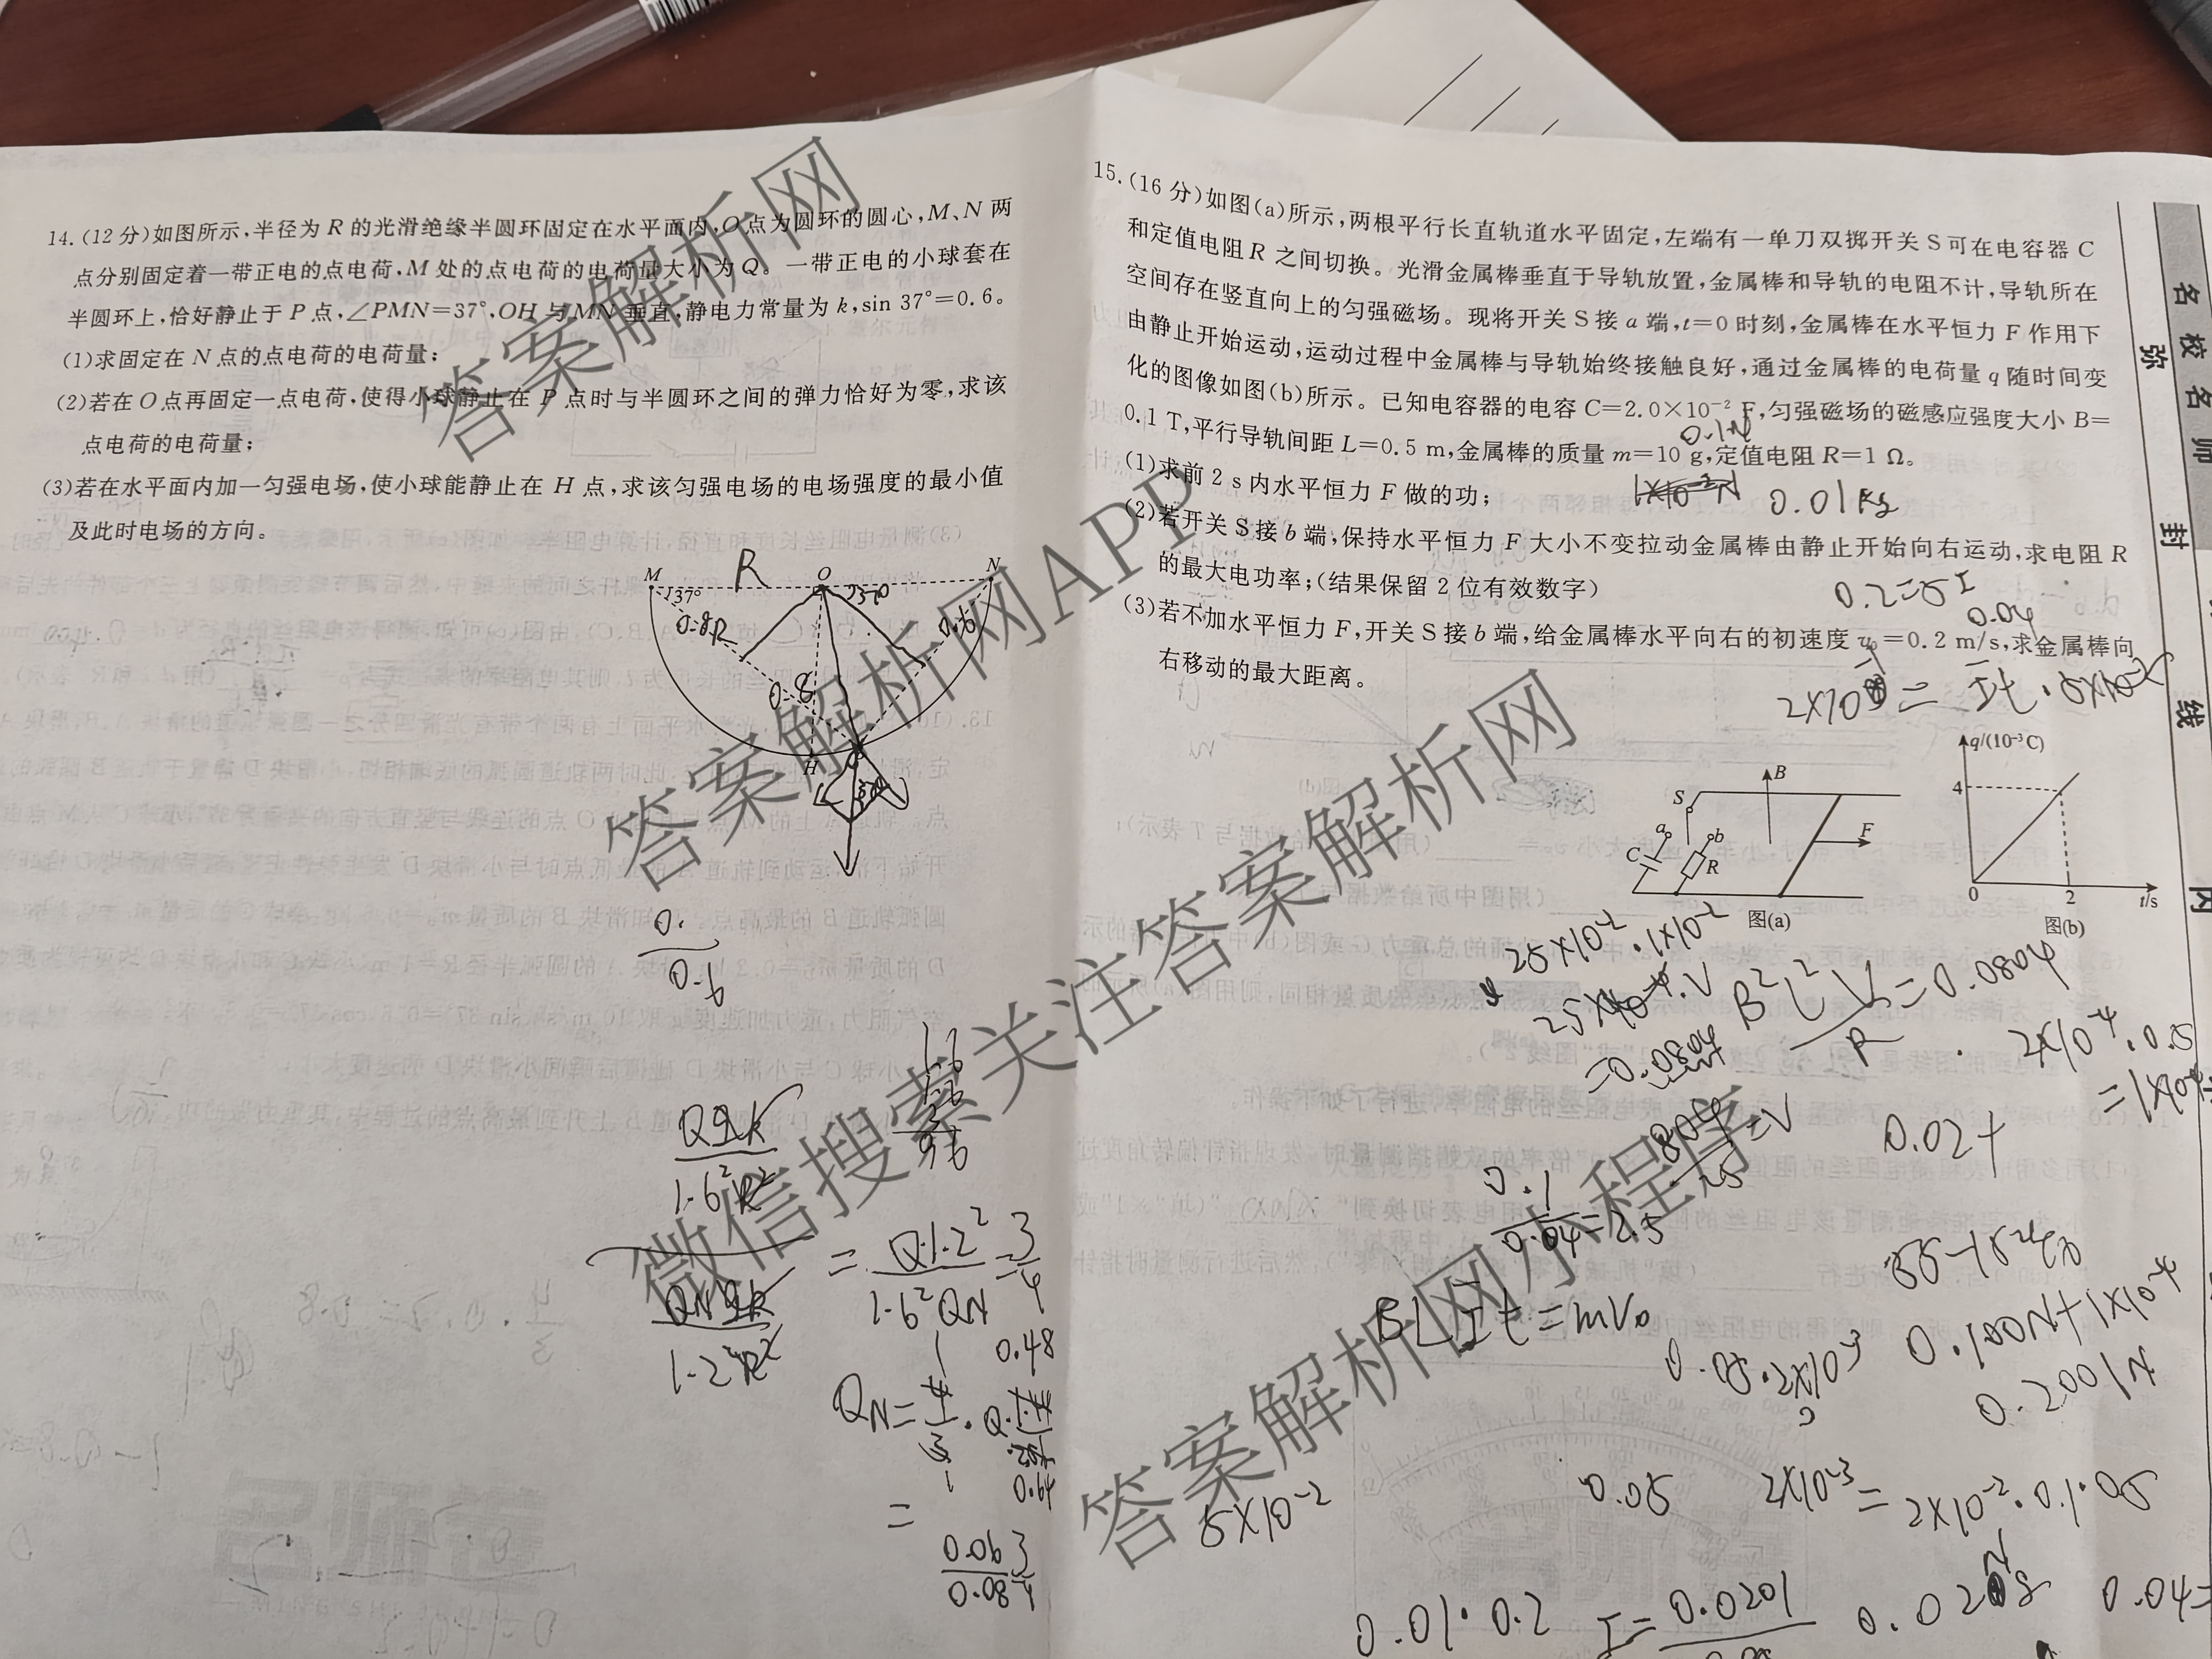 14.(12分)如图所示,半径为R的光滑绝缘半圆环固定在水平面内,O点为圆环的圆心,M、N两
点分别固定着一带正电的点电荷,M处的点电荷的电荷量大小为Q。一带正电的小球套在
半圆环上,恰好静止于P点,∠PMN=37°,OH与MN垂直,静电力常量为k,sin 37°=0.6。
(1)求固定在N点的点电荷的电荷量;
(2)若在O点再固定一点电荷,使得小球静止在P点时与半圆环之间的弹力恰好为零,求该
点电荷的电荷量;
(3)若在水平面内加一匀强电场,使小球能静止在H点,求该匀强电场的电场强度的最小值
及此时电场的方向。
M
R
O
N
37°
37°
0.8R
0.6
0.8
H
0.
0.6
1.6
1.6
96
QqK
1.6²R²
QNqK
1.2²R²
= Q1.2² / 1.6²QN = 3/4
QN = 4/3 · Q
0.48
0.64
=
0.06 3
0.08 4
15.(16分)如图(a)所示,两根平行长直轨道水平固定,左端有一单刀双掷开关S可在电容器C
和定值电阻R之间切换。光滑金属棒垂直于导轨放置,金属棒和导轨的电阻不计,导轨所在
空间存在竖直向上的匀强磁场。现将开关S接a端,t=0时刻,金属棒在水平恒力F作用下
由静止开始运动,运动过程中金属棒与导轨始终接触良好,通过金属棒的电荷量q随时间变
化的图像如图(b)所示。已知电容器的电容C=2.0×10⁻² F,匀强磁场的磁感应强度大小B=
0.1 T,平行导轨间距L=0.5 m,金属棒的质量m=10 g,定值电阻R=1 Ω。
0.1N
(1)求前2 s内水平恒力F做的功;
1×10⁻²N
0.01kg
(2)若开关S接b端,保持水平恒力F大小不变拉动金属棒由静止开始向右运动,求电阻R
的最大电功率;(结果保留2位有效数字)
0.2=5I
0.04
(3)若不加水平恒力F,开关S接b端,给金属棒水平向右的初速度v₀=0.2 m/s,求金属棒向
右移动的最大距离。
S
a
b
C
R
B
F
图(a)
q/(10⁻³C)
4
0
2
t/s
图(b)
25×10⁻²·1×10⁻²
B²L²V / R = 0.0804
=0.0804
2×10⁻⁴·0.5
804 / 25 = V
0.02+
0.1 / 0.04 = 2.5
BLIt=mV₀
0.2001N
5×10⁻²
0.05
2×10⁻³=2×10⁻²·0.1·0.5
0.01·0.2
I=0.0201
0.04=
名校名师
弥
封
线
内
答案解析网
答案解析网APP
答案解析网
微信搜索关注答案解析网
答案解析网小程序